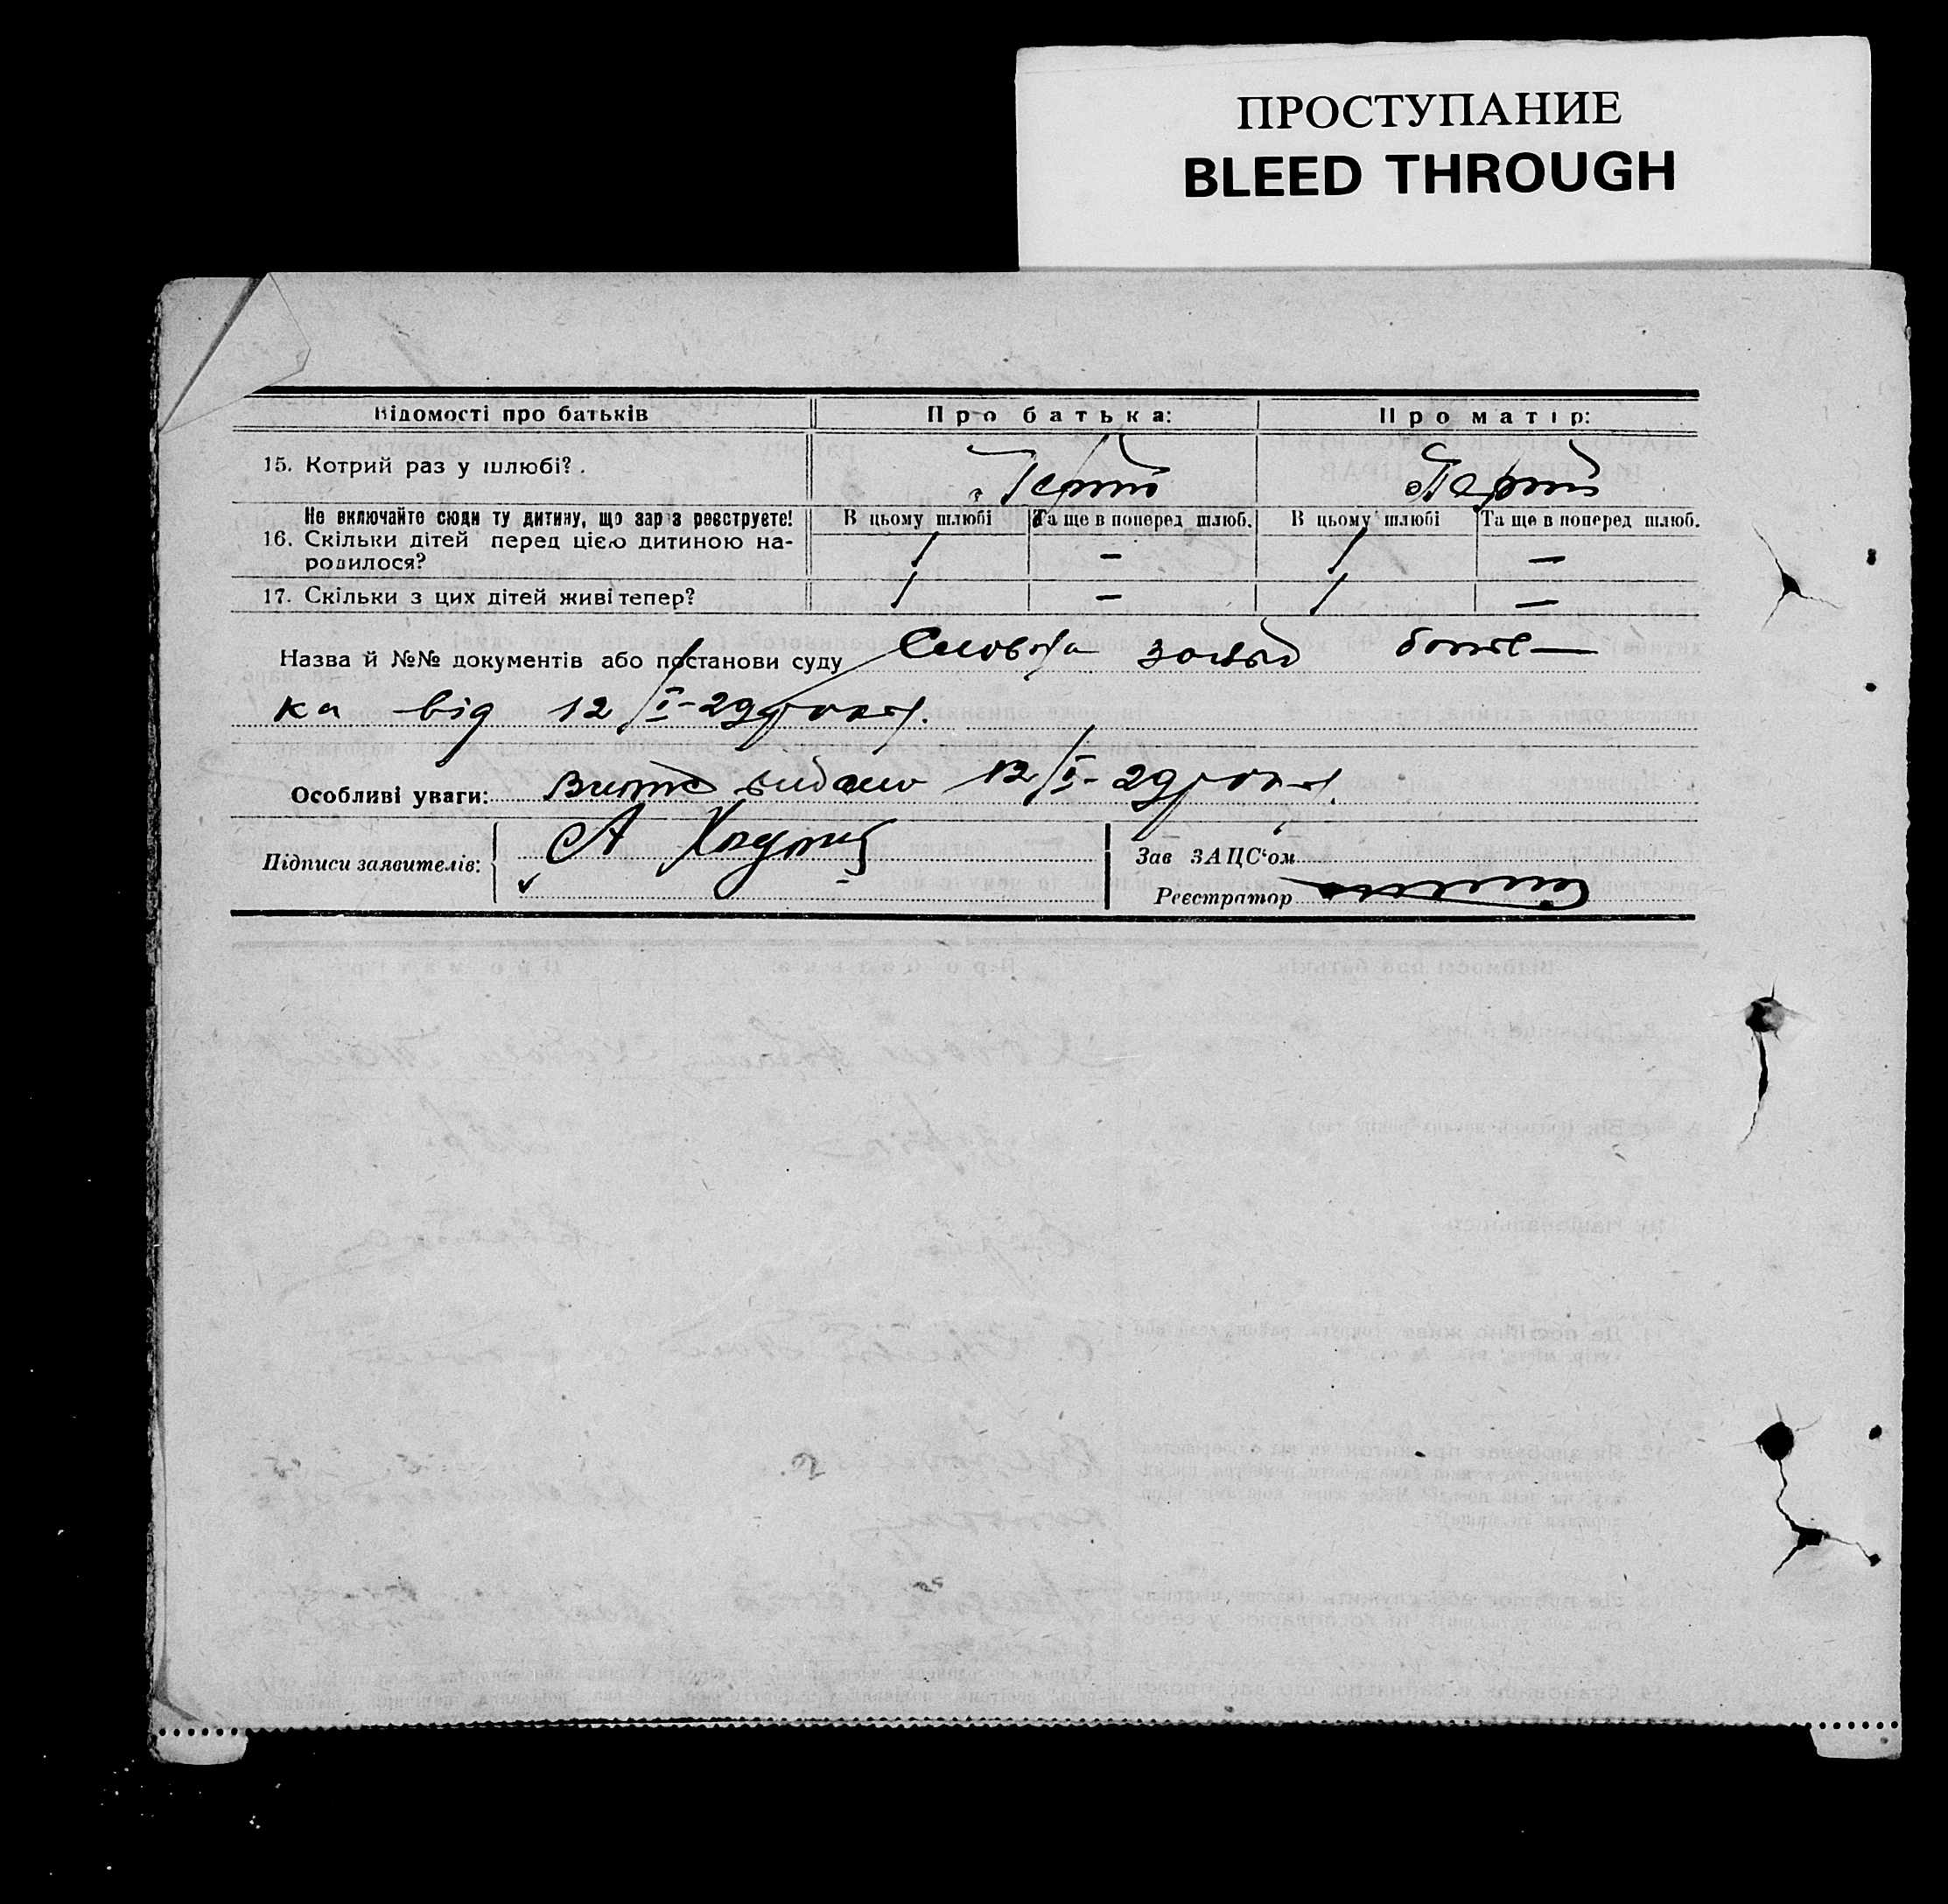 ПРОСТУПАНИЕ
BLEED THROUGH
Відомості про батьків Про батька: Про матір:
15. Котрий раз у шлюбі?.
Не включайте сюди ту дитину, що зараз реєструєте! В цьому шлюбі Та ще в поперед шлюб. В цьому шлюбі Та ще в поперед шлюб.
16. Скільки дітей перед цією дитиною на-
родилося? 1 — 1 —
17. Скільки з цих дітей живі тепер? 1 — 1 —
Назва й №№ документів або постанови суду Словесна заява бать-
ка від 12/I-29 року.
Особливі уваги: видано 12/I-29 року.
Підписи заявителів: А
Зав ЗАЦС'ом
Реєстратор